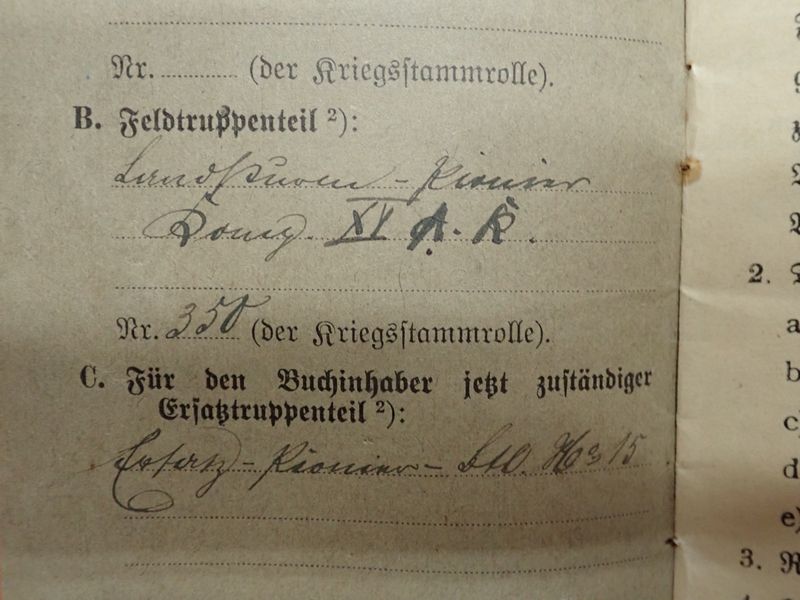 Nr. ............ (der Kriegsstammrolle).
B. Feldtruppenteil ²):
Landsturm - Pionier
Komp. XV A. K.
Nr. 350 (der Kriegsstammrolle).
C. Für den Buchinhaber jetzt zuständiger
Ersatztruppenteil ²):
Ersatz - Pionier - Btl. No 15
2.
a
b
c
d
e)
3. R